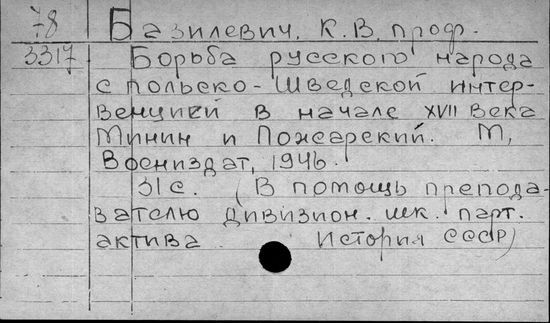 78 Базилевич, К.В. проф.
3317 Борьба русского народа
с польско-шведской интер-
венцией в начале XVII века
Минин и Пожарский. М,
Воениздат, 1946.
31 с. (В помощь препода-
вателю дивизион. шк. парт.
актива История СССР)